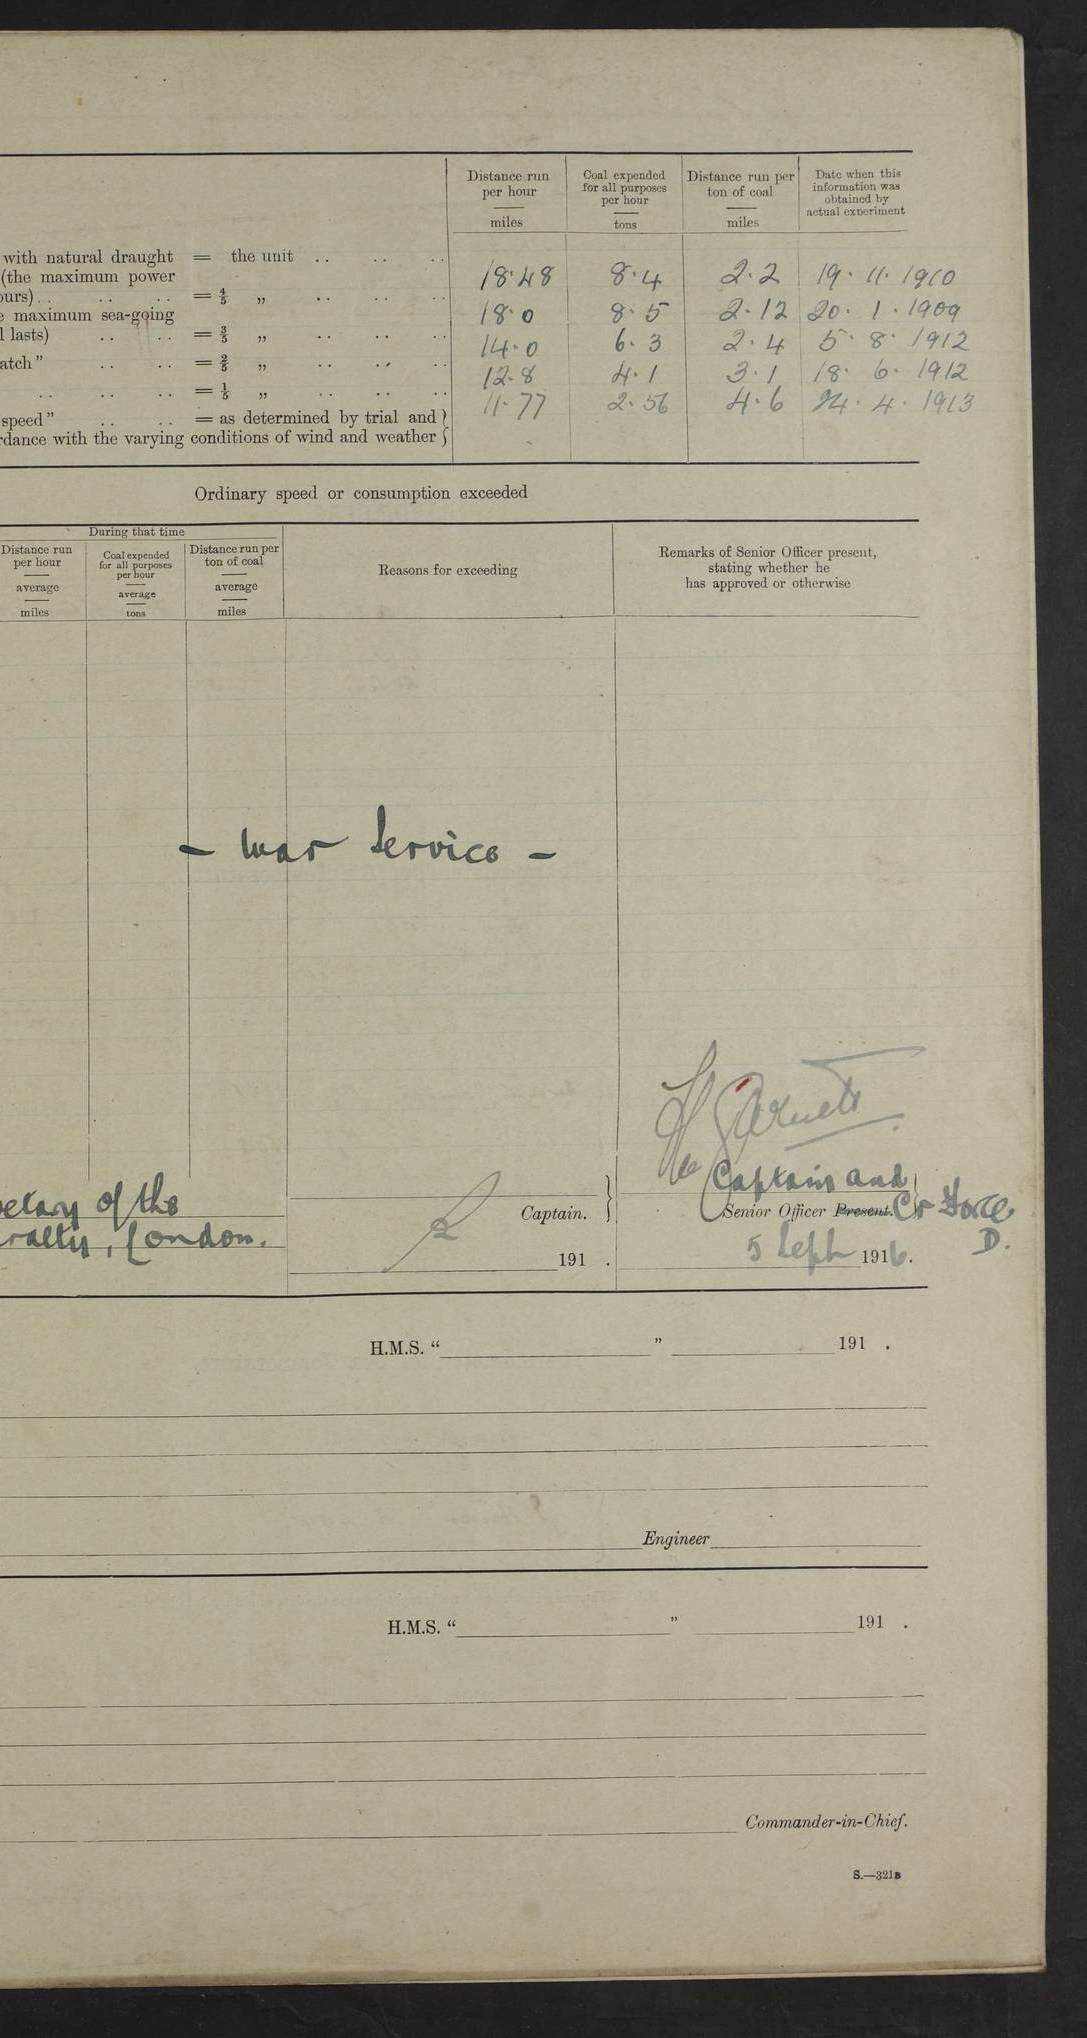 Distance run per hour
miles
Coal expended for all purposes per hour
tons
Distance run per ton of coal
miles
Date when this information was obtained by actual experiment
with natural draught = the unit .. .. ..
(the maximum power
ours).. .. .. = 4/5 „ .. .. .. 18·48 8·4 2·2 19·11·1910
e maximum sea-going 18·0 8·5 2·12 20·1·1909
l lasts) .. .. = 3/5 „ .. .. .. 14·0 6·3 2·4 5·8·1912
atch" .. .. = 2/5 „ .. .. .. 12·8 4·1 3·1 18·6·1912
.. .. .. = 1/5 „ .. .. .. 11·77 2·56 4·6 24·4·1913
speed" .. .. = as determined by trial and }
rdance with the varying conditions of wind and weather }
Ordinary speed or consumption exceeded
During that time
Distance run per hour
average
miles
Coal expended for all purposes per hour
average
tons
Distance run per ton of coal
average
miles
Reasons for exceeding
Remarks of Senior Officer present,
stating whether he
has approved or otherwise
- War Service -
Captain and
etary of the
Captain. } Senior Officer Present. Cr Force
ralty, London. D.
191 . 5 Sept 1916.
H.M.S. "          "          191 .
Engineer
H.M.S. "          "          191 .
Commander-in-Chief.
S.—321B